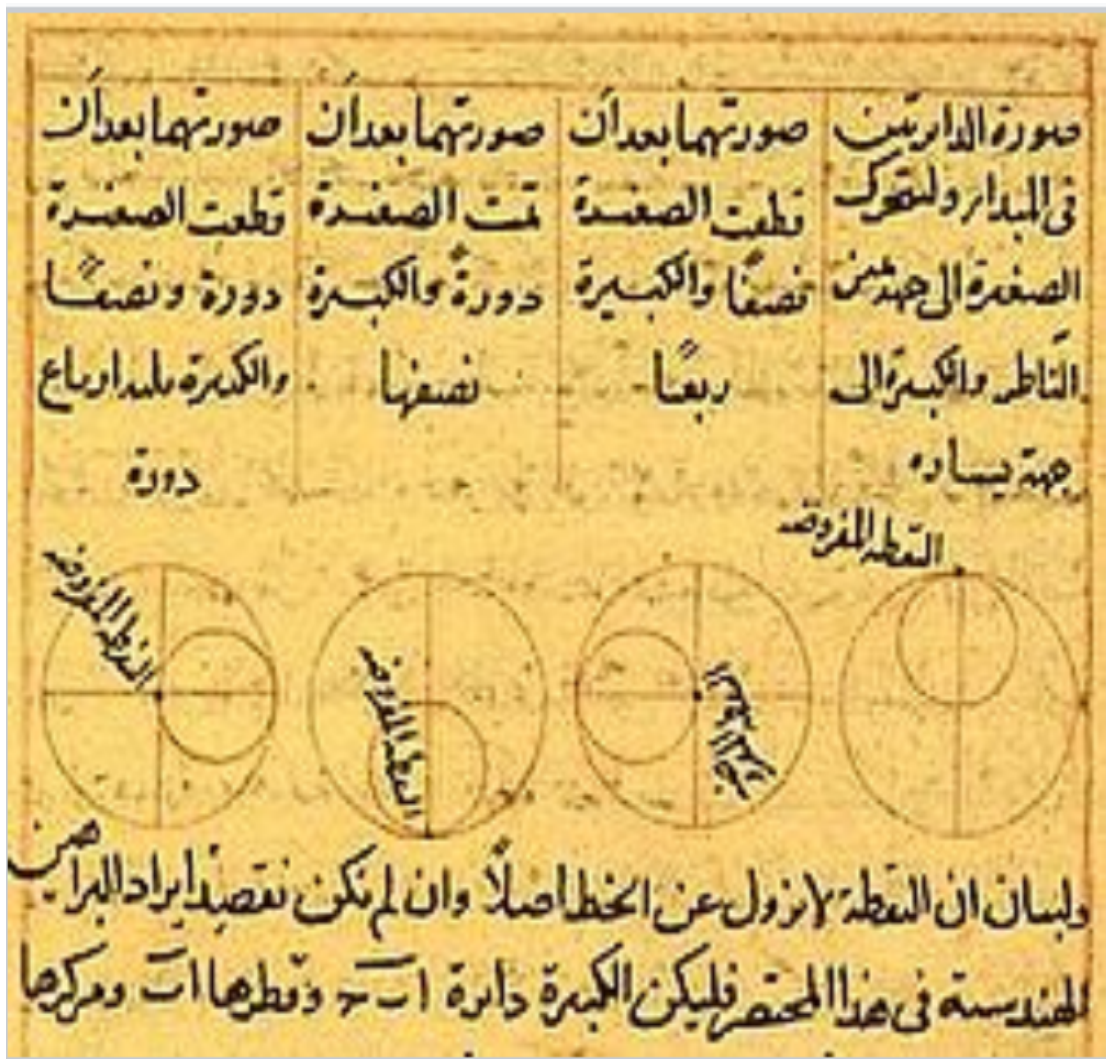 صورة الدايرتين
فى المبدا ولتتحرك
الصغيرة الى جهة يمين
الناظر والكبيرة الى
جهة يساره
صورتهما بعد أن
قطعت الصغيرة
نصفًا والكبيرة
ربعًا
صورتهما بعد أن
تمت الصغيرة
دورةً والكبيرة
نصفها
صورتهما بعد أن
قطعت الصغيرة
دورة ونصفًا
والكبيرة ثلثة ارباع
دورة
النقطة المفروضة
النقطة المفروضة
النقطة المفروضة
النقطة المفروضة
ولبيان ان النقطة لا تزول عن الخط اصلًا وان لم نكن نقصد ايراد البراهين
الهندسية فى هذا المختصر فليكن الكبيرة دايرة ا ب ج وقطرها ا ب ومركزها